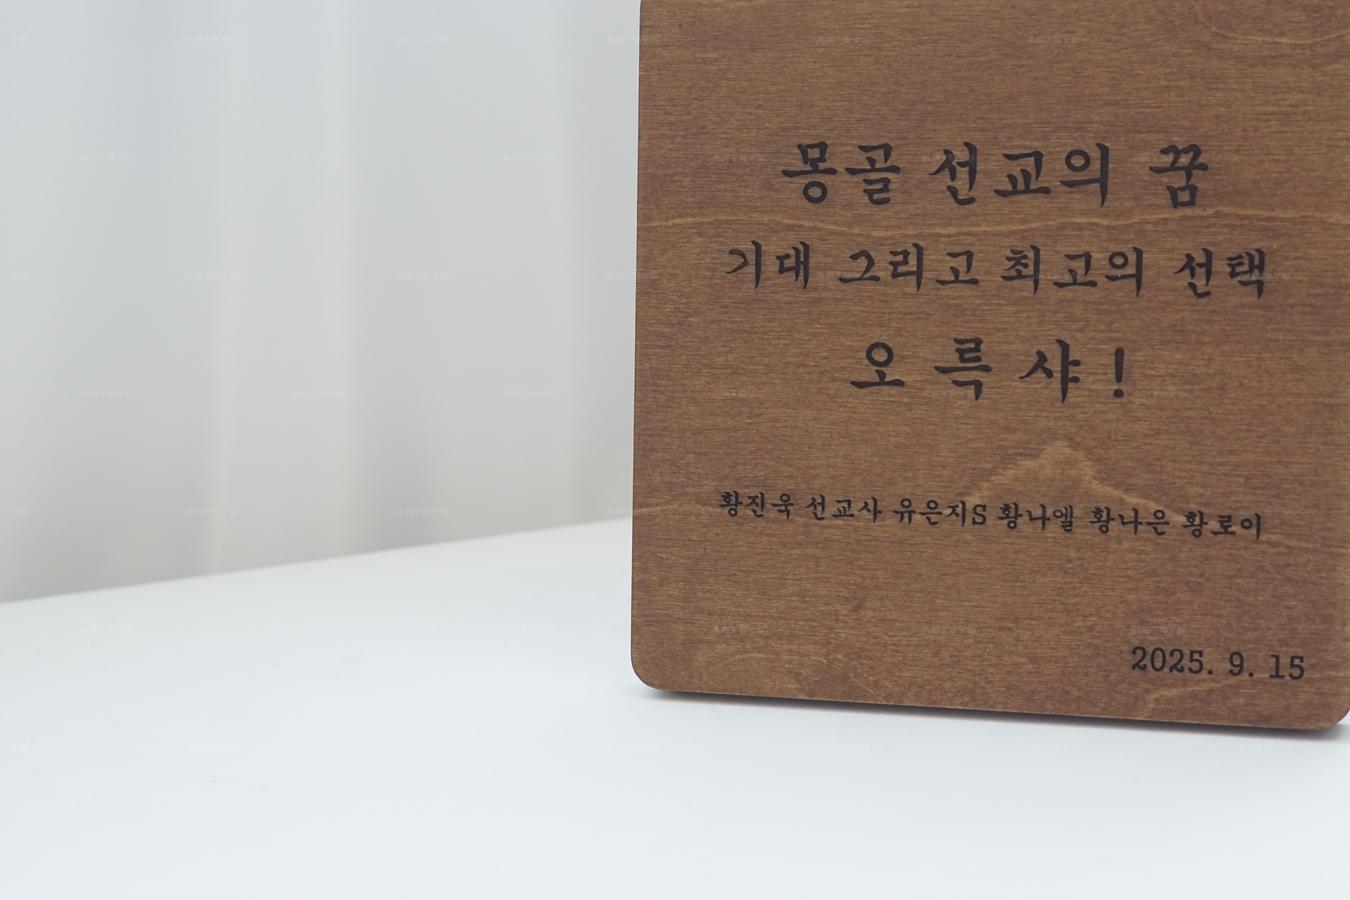 몽골 선교의 꿈
기대 그리고 최고의 선택
오 륵 샤 !
황진욱 선교사 유은지S 황나엘 황나은 황로이
2025. 9. 15